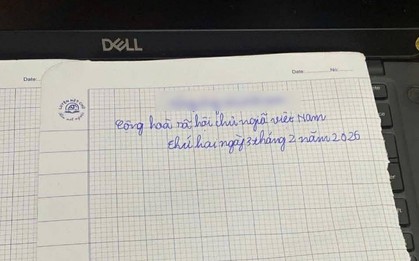 DELL
Date No.
Date
Cộng hoà xã hội chủ nghĩ việt Nam
Thứ hai ngày 3 tháng 2 năm 2026